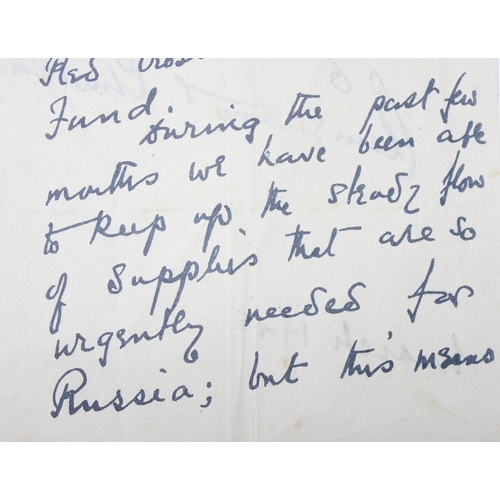 Red Cross
Fund.
During the past few
months we have been able
to keep up the steady flow
of supplies that are so
urgently needed for
Russia; but this means